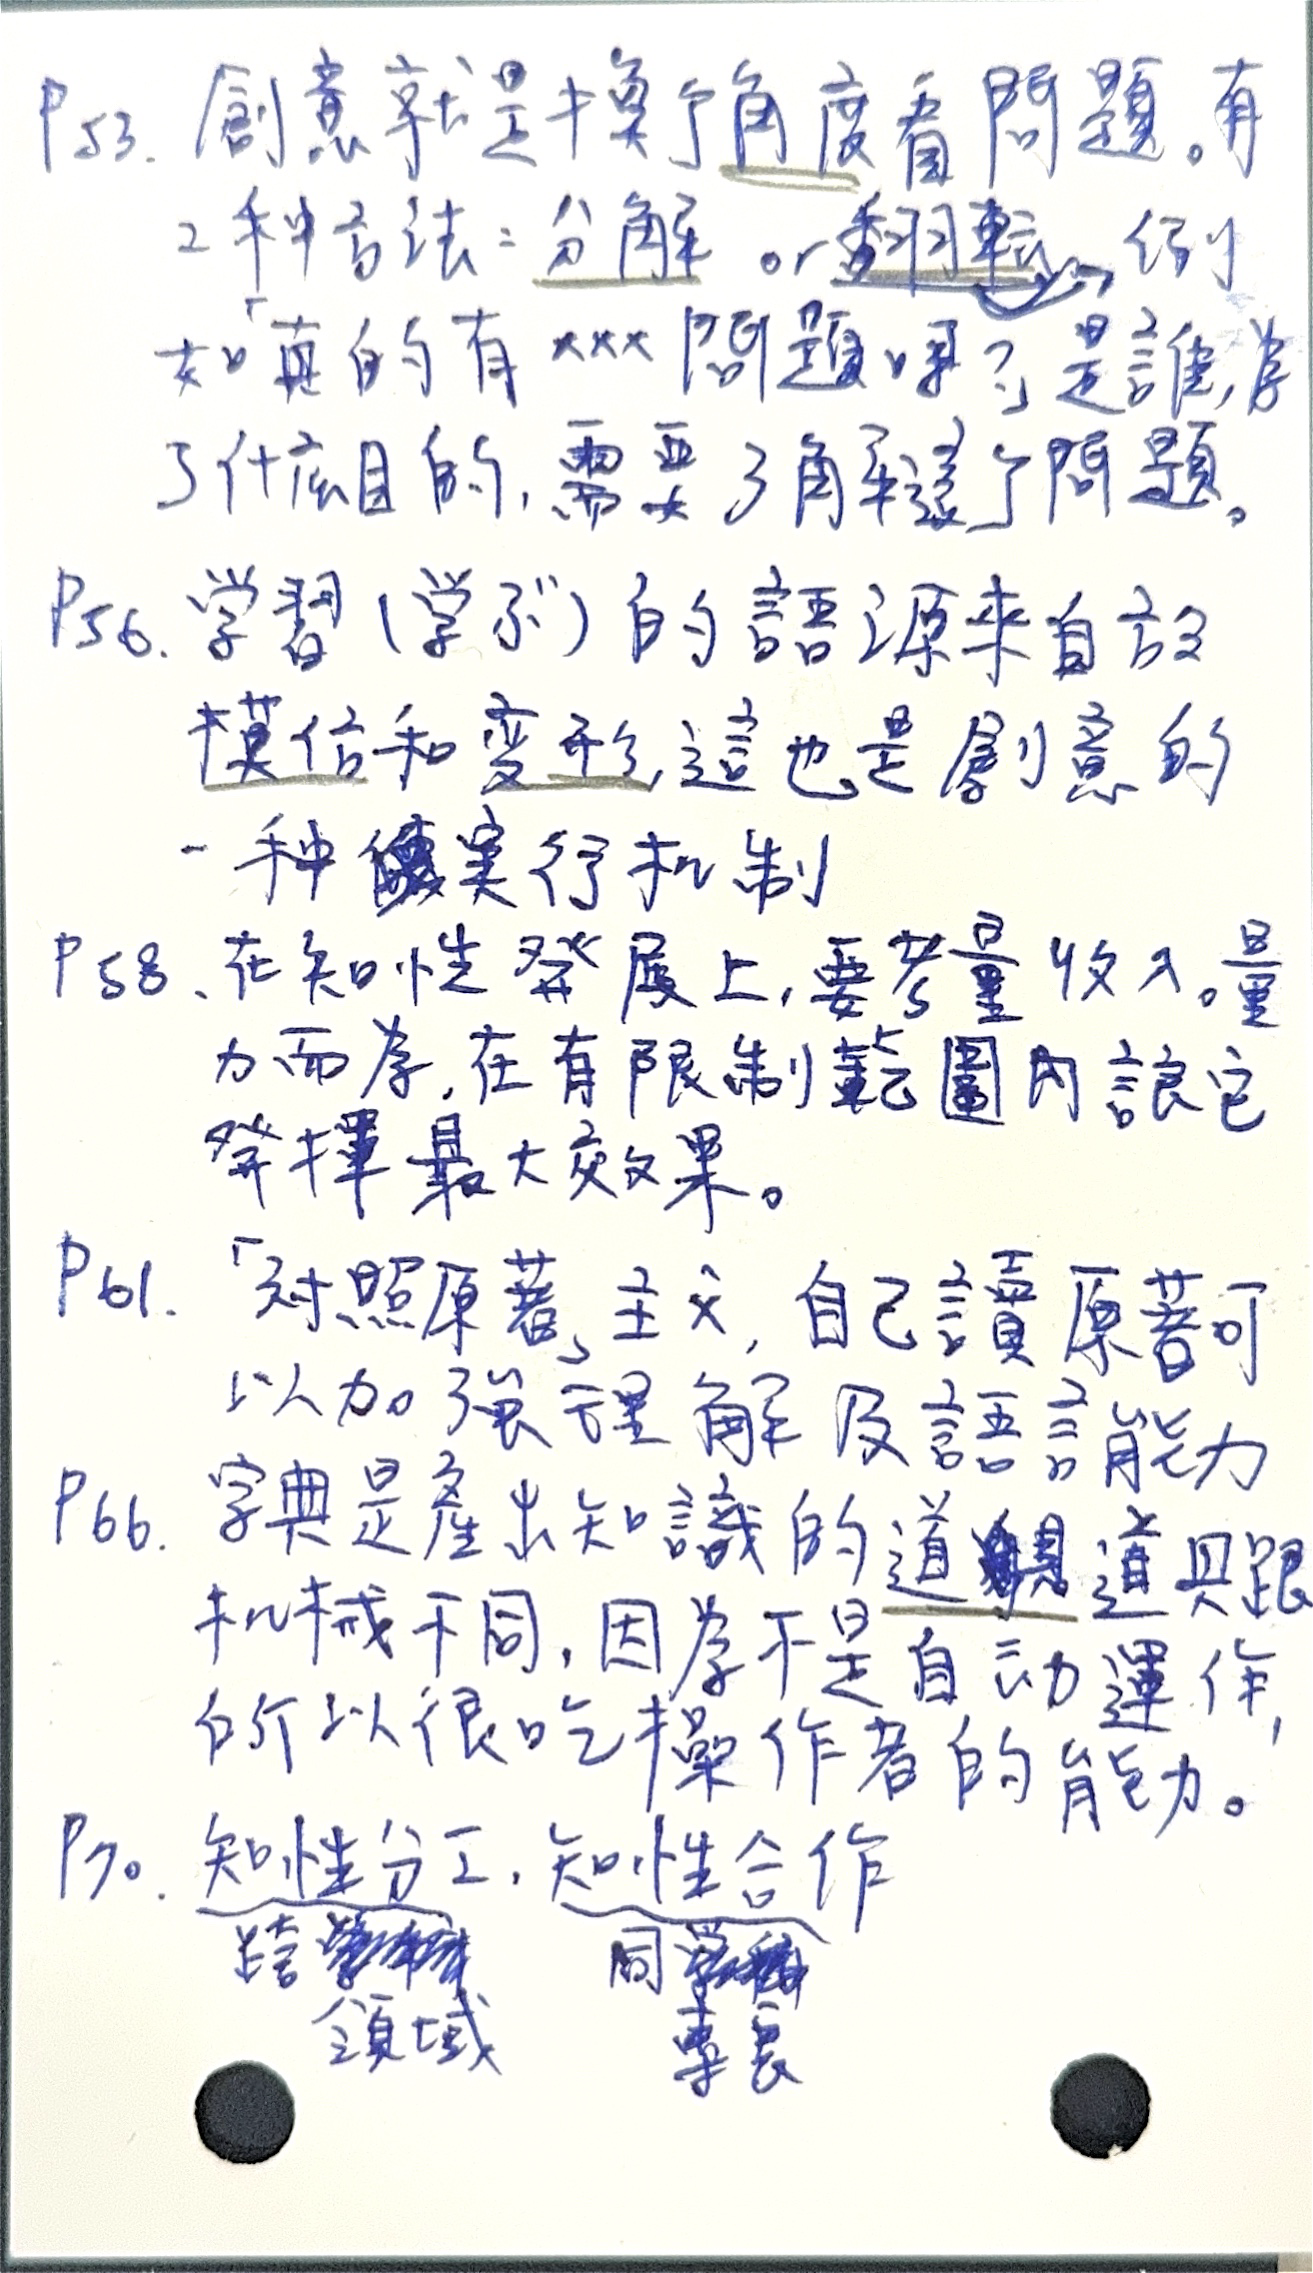 P53. 創意就是換个角度看問題。有
2种方法:分解 or 翻転→例
如「真的有×××問題嗎?」是誰,為
了什庅目的,需要了解這个問題。
P56. 学習(学ぶ)的語源來自於
模仿和変形,這也是創意的
一种実行机制
P58、在知性發展上,要考量收入。量
力而為,在有限制範圍內讓它
發揮最大效果。
P61. 「対照原著」主义,自己讀原著可
以加強理解及語言能力
P66. 字典是產出知識的道具道具跟
机械不同,因為不是自动運作,
所以很吃操作者的能力。
P70. 知性分工,知性合作
跨 同
領域 專長